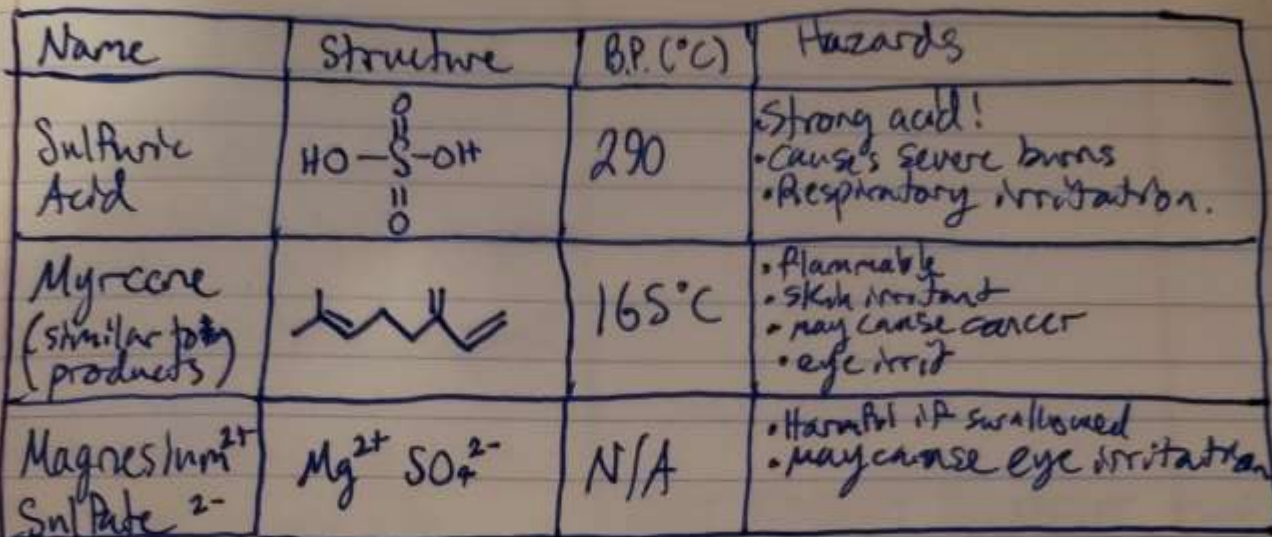 Name Structure B.P. (°C) Hazards
Sulfuric
Acid
O
HO-S-OH
O
290
• Strong acid!
• Cause's severe burns
• Respiratory irritation.
Myrcene
(similar to
products)
165°C
• flammable
• skin irritant
• may cause cancer
• eye irrit
Magnesium 2+
Sulfate 2-
Mg2+ SO4 2-
N/A
• Harmful if swallowed
• may cause eye irritation